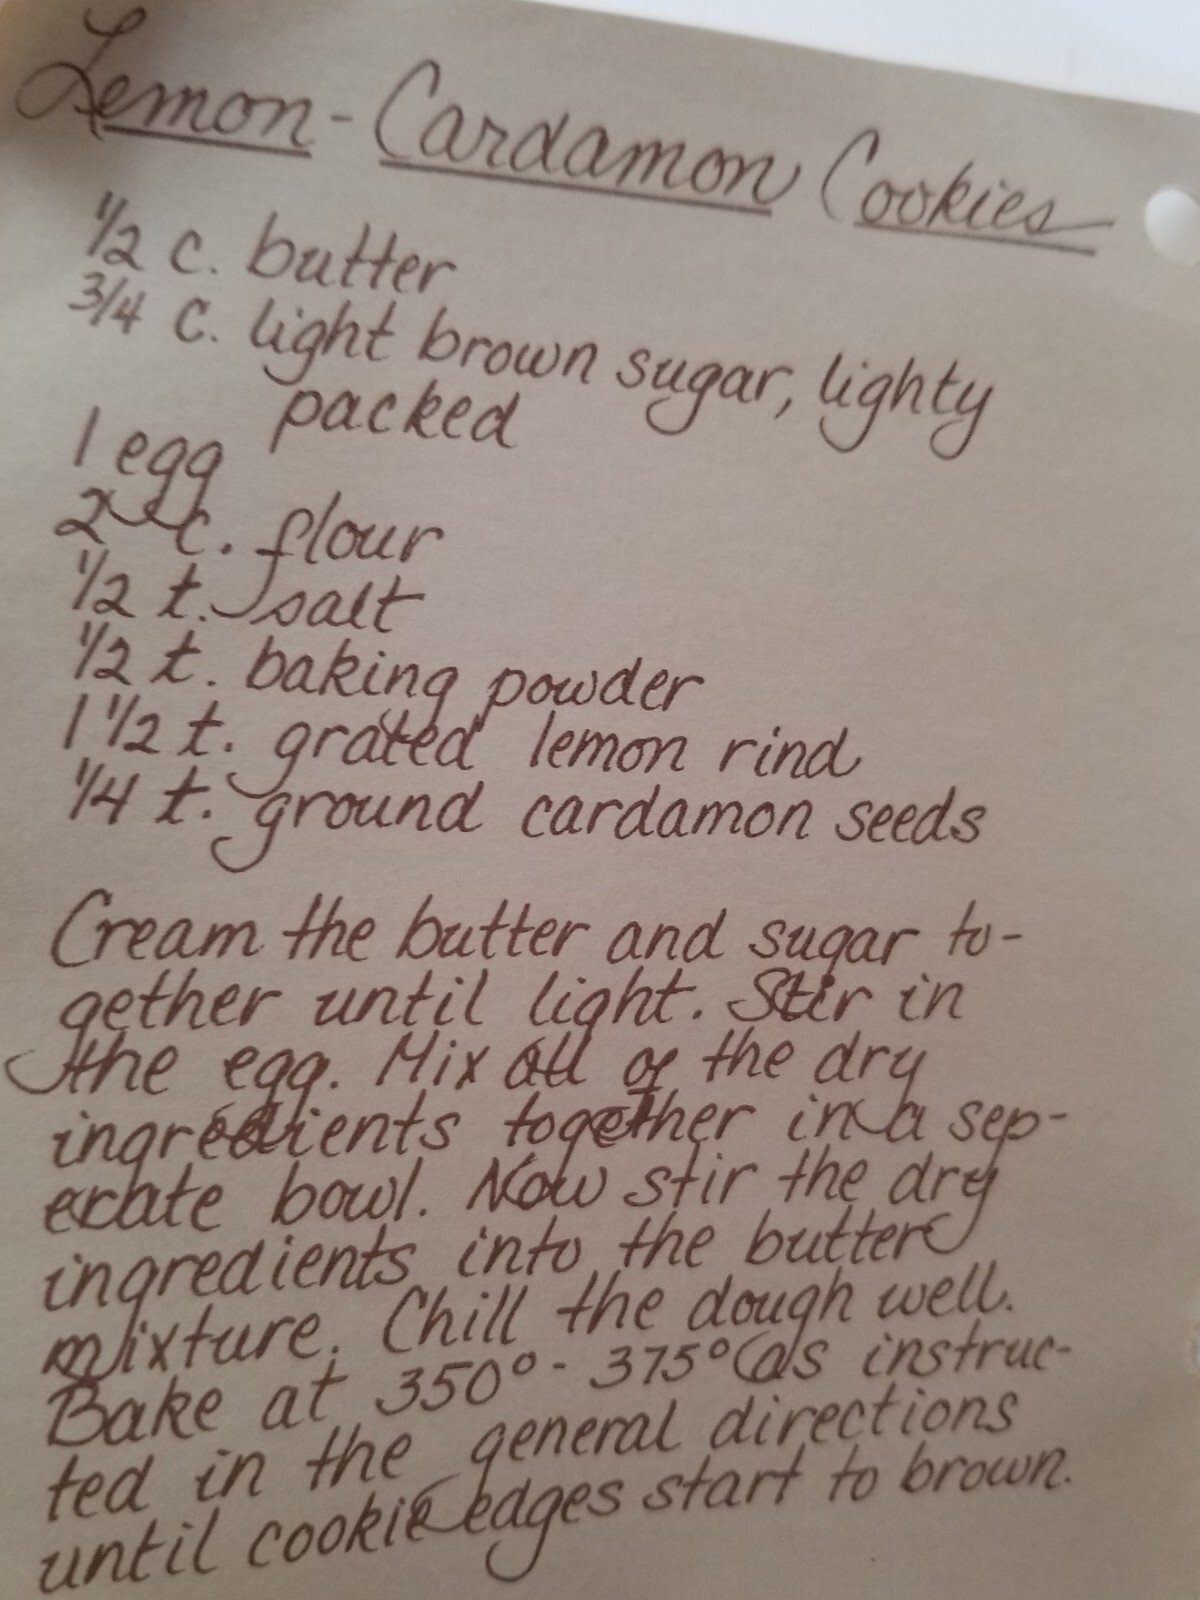 Lemon-Cardamon Cookies
1/2 c. butter
3/4 c. light brown sugar, lighty
packed
1 egg
2 c. flour
1/2 t. salt
1/2 t. baking powder
1 1/2 t. grated lemon rind
1/4 t. ground cardamon seeds
Cream the butter and sugar to-
gether until light. Stir in
the egg. Mix all of the dry
ingredients together in a sep-
erate bowl. Now stir the dry
ingredients into the butter
mixture. Chill the dough well.
Bake at 350°-375° as instruc-
ted in the general directions
until cookie edges start to brown.